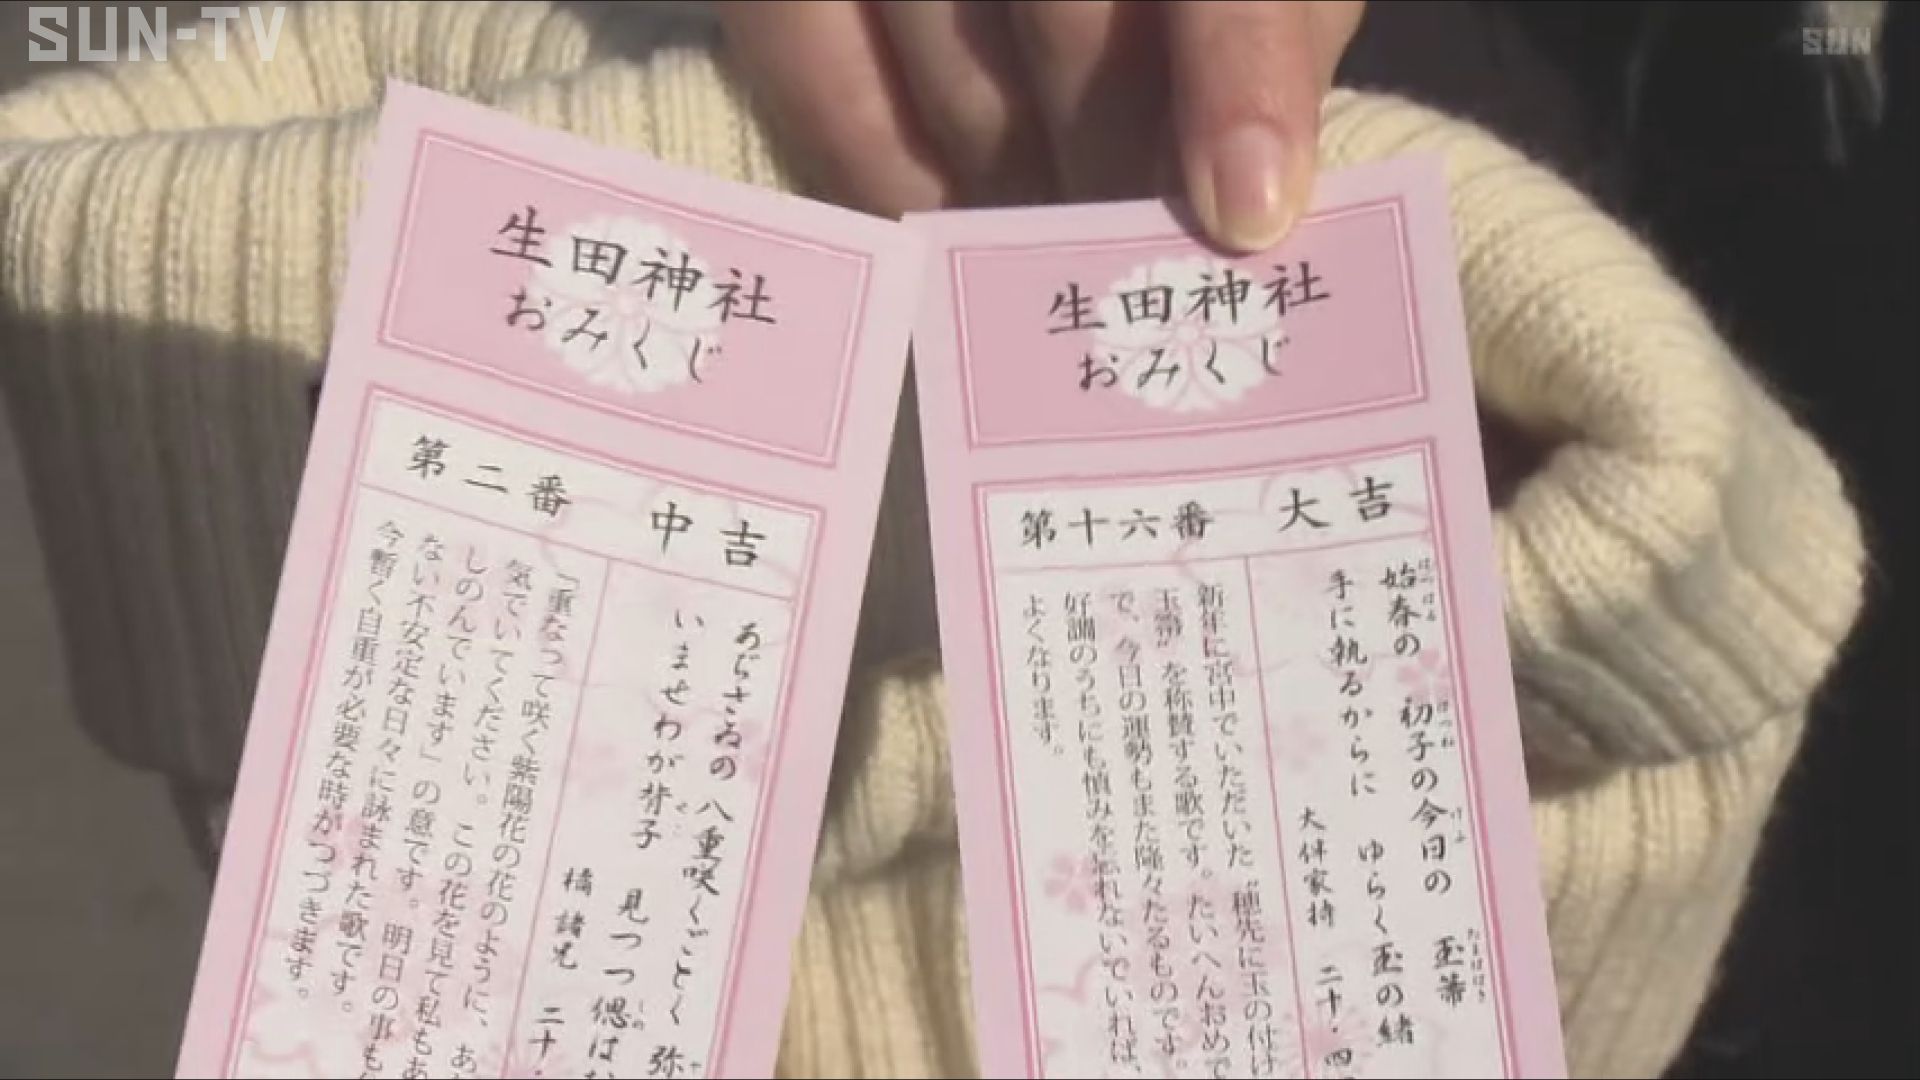 SUN-TV
SUN
生田神社
おみくじ
第二番 中吉
あぢさゐの 八重咲くごとく 弥
いませわが背子 見つつ偲はむ
橘諸兄 二十・
「重なって咲く紫陽花の花のように、
気でいてください。この花を見て私もあ
しのんでいます」の意です。明日の事も
ない不安定な日々に詠まれた歌です。
今暫く自重が必要な時がつづきます。
生田神社
おみくじ
第十六番 大吉
始春の 初子の今日の 玉箒
はつはる はつね けふ たまばはき
手に執るからに ゆらく玉の緒
大伴家持 二十・四
新年に宮中でいただいた“穂先に玉の付け
玉箒”を称賛する歌です。たいへんおめで
で、今日の運勢もまた隆々たるものです。
好調のうちにも慎みを忘れないでいれば、
よくなります。